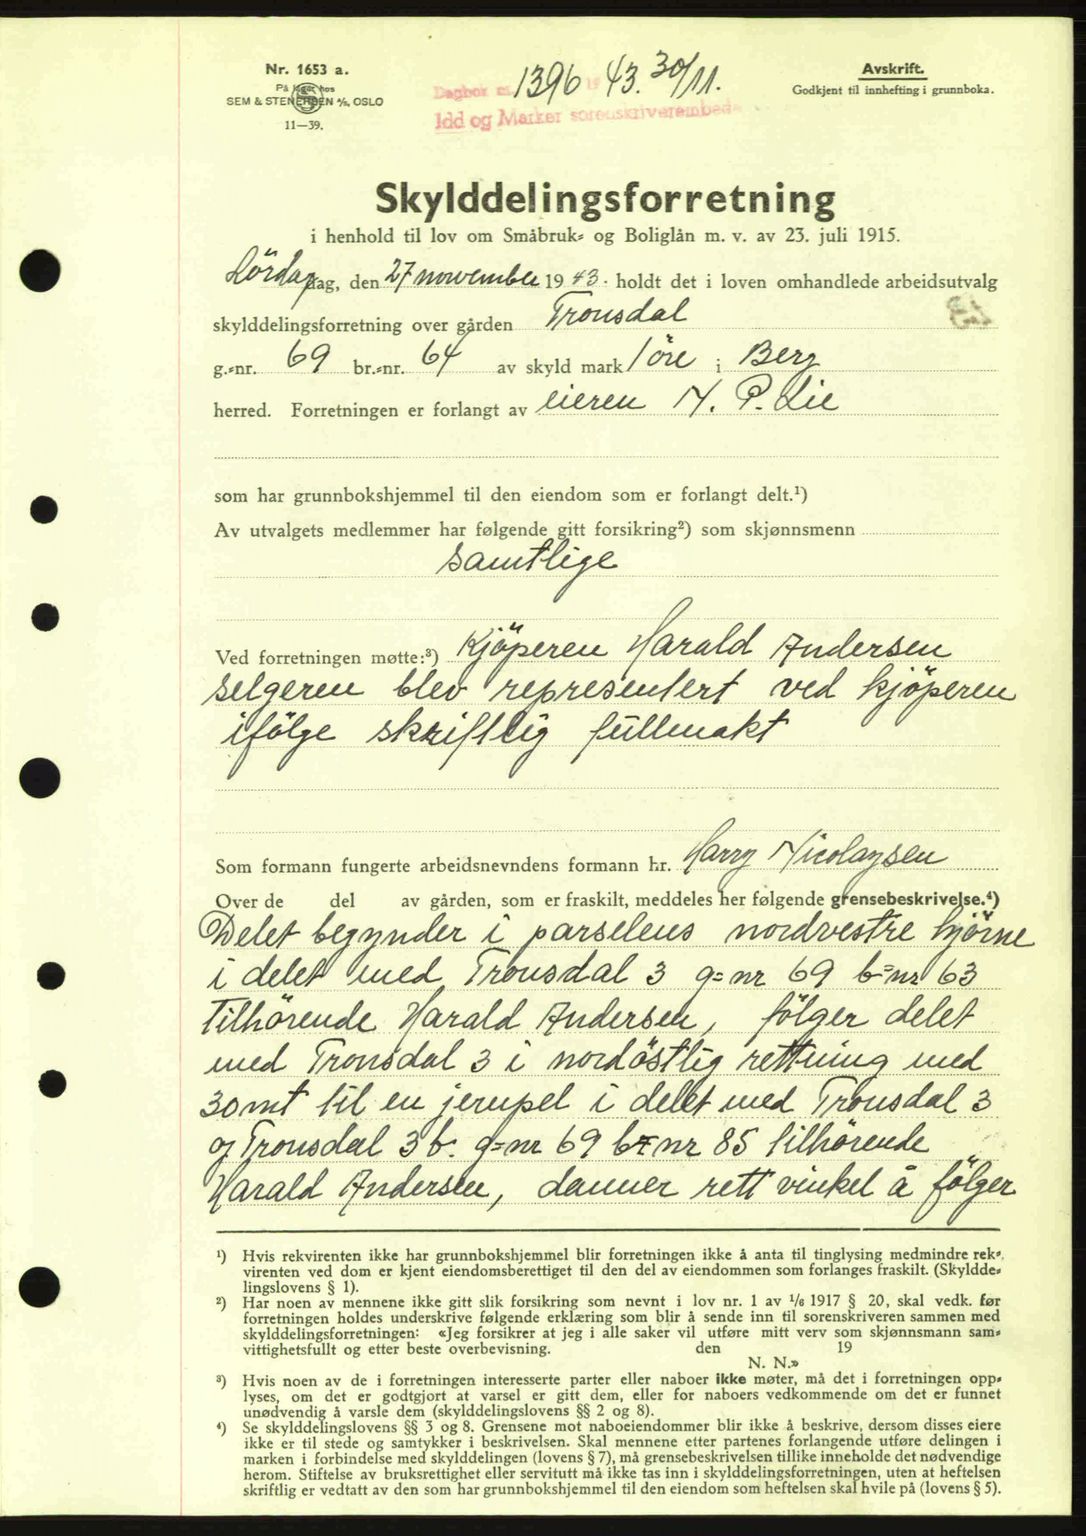 Nr. 1653 a.
På lager hos
SEM & STENERSEN A/S, OSLO
11—39.
Dagbok nr. 1396 19 43. 30/11.
Idd og Marker sorenskriverembede
Avskrift.
Godkjent til innhefting i grunnboka.
Skylddelingsforretning
i henhold til lov om Småbruk- og Boliglån m. v. av 23. juli 1915.
Lördag dag, den 27 november 1943. holdt det i loven omhandlede arbeidsutvalg
skylddelingsforretning over gården Tronsdal
g.-nr. 69 br.-nr. 64 av skyld mark 1 öre i Berg
herred. Forretningen er forlangt av eieren N. P. Lie
som har grunnbokshjemmel til den eiendom som er forlangt delt.¹)
Av utvalgets medlemmer har følgende gitt forsikring²) som skjønnsmenn
samtlige
Ved forretningen møtte:³) Kjöperen Harald Andersen
selgeren blev representert ved kjöperen
ifölge skriftlig fullmakt
Som formann fungerte arbeidsnevndens formann hr. Harry Nicolaysen
Over de del av gården, som er fraskilt, meddeles her følgende grensebeskrivelse.⁴)
Delet begynder i parselens nordvestre hjörne
i delet med Tronsdal 3 g=nr 69 b=nr 63
Tilhörende Harald Andersen, fölger delet
med Tronsdal 3 i nordöstlig rettning med
30 mt til en jernpel i delet med Tronsdal 3
og Tronsdal 3 b. g=nr 69 b=nr 85 tilhörende
Harald Andersen, danner rett vinkel å fölger
¹) Hvis rekvirenten ikke har grunnbokshjemmel blir forretningen ikke å anta til tinglysing medmindre rek-
virenten ved dom er kjent eiendomsberettiget til den del av eiendommen som forlanges fraskilt. (Skyldde-
lingslovens § 1).
²) Har noen av mennene ikke gitt slik forsikring som nevnt i lov nr. 1 av 1/6 1917 § 20, skal vedk. før
forretningen holdes underskrive følgende erklæring som blir å sende inn til sorenskriveren sammen med
skylddelingsforretningen: «Jeg forsikrer at jeg i alle saker vil utføre mitt verv som skjønnsmann sam-
vittighetsfullt og etter beste overbevisning. den 19
N. N.»
³) Hvis noen av de i forretningen interesserte parter eller naboer ikke møter, må det i forretningen opp-
lyses, om det er godtgjort at varsel er gitt dem, eller for naboers vedkommende om det er funnet
unødvendig å varsle dem (skylddelingslovens §§ 2 og 8).
⁴) Se skylddelingslovens §§ 3 og 8. Grensene mot naboeiendommer blir ikke å beskrive, dersom disses eiere
ikke er til stede og samtykker i beskrivelsen. Skal mennene etter partenes forlangende utføre delingen i
marken i forbindelse med skylddelingen (lovens § 7), må grensebeskrivelsen tillike inneholde det nødvendige
herom. Stiftelse av bruksrettighet eller servitutt må ikke tas inn i skylddelingsforretningen, uten at heftelsen
skriftlig er vedtatt av den som har grunnbokshjemmel til den eiendom som heftelsen skal hvile på (lovens § 5).